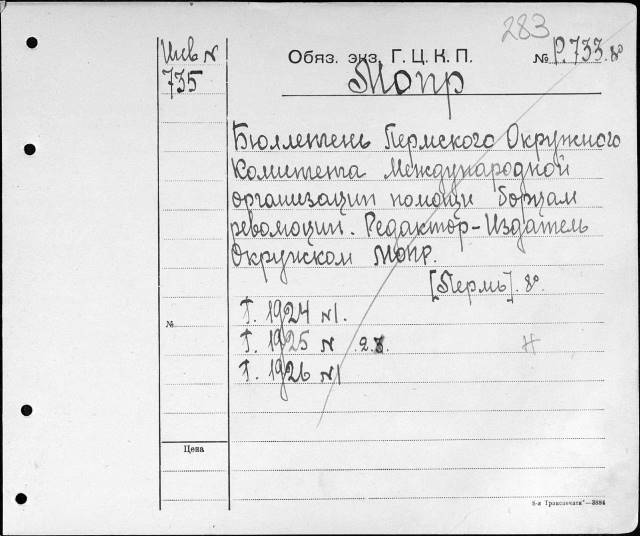 283
Инв N
735
Обяз. экз. Г. Ц. К. П.
№ Р.733.8°
Мопр
Бюллетень Пермского Окружного
Комитета Международной
организации помощи борцам
революции. Редактор-Издатель
Окружком Мопр.
[Пермь]. 8°.
Г. 1924 N1.
№
Г. 1925 N 2.
Г. 1926 N1
Цена
8-я „Транспечати"—3884